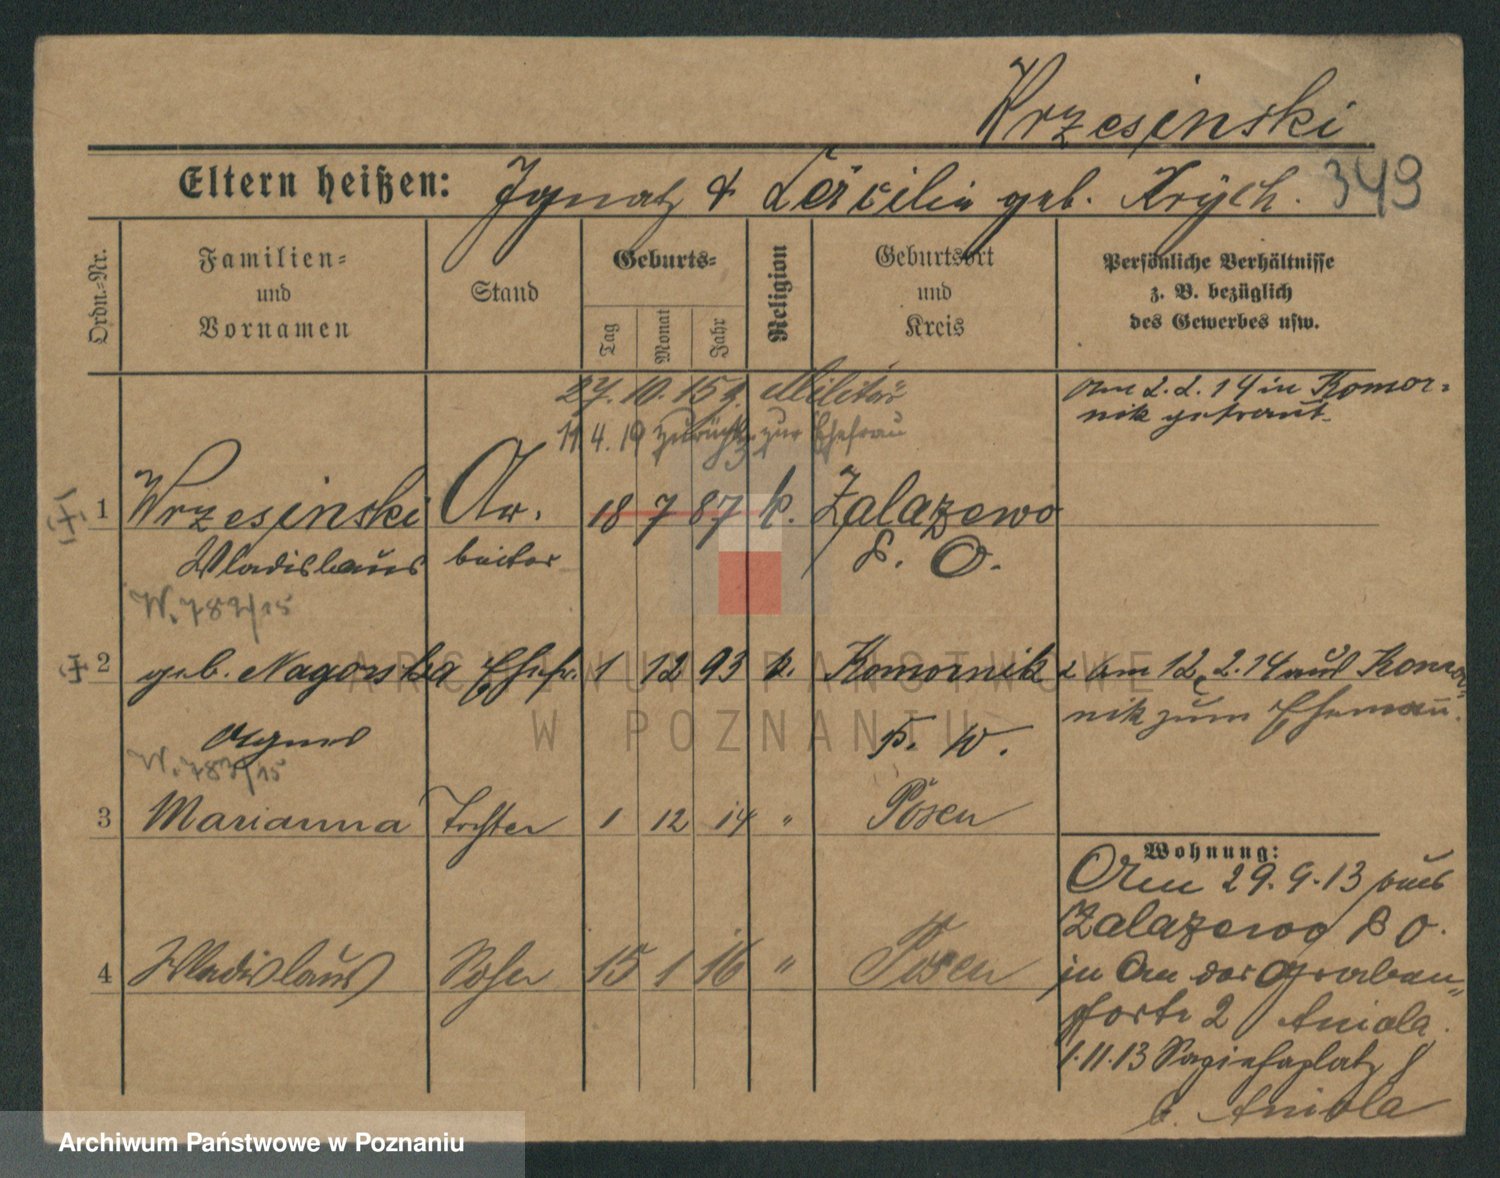 Wrzesinski
Eltern heißen: Ignatz & Cäcilie geb. Krych. 349
Ordn.-Nr.
Familien-
und
Vornamen
Stand
Geburts-
Tag
Monat
Jahr
Religion
Geburtsort
und
Kreis
Persönliche Verhältnisse
z. B. bezüglich
des Gewerbes usw.
27. 10. 15 z. Militär
11. 4. 19 zurück zur Ehefrau
am 2. 2. 14 in Komor-
nik getraut.
1 Wrzesinski Ar- 18 7 87 k. Zalazewo
Wladislaus beiter P. O.
W. 782/15
2 geb. Nagorska Ehefr. 1 12 93 k. Komornik
Agnes P. W.
W. 782/15
2 am 12. 2. 14 aus Komor-
nik zum Ehemann.
3 Marianna Tochter 1 12 14 " Posen
4 Wladislaus Sohn 15 1 16 " Posen
Wohnung:
Am 29. 9. 13 aus
Zalazewo P O.
in An der Graben-
pforte 2 Aniola.
1. 11. 13 Sapiehaplatz 8
b. Aniola
ARCHIWUM PAŃSTWOWE
W POZNANIU
Archiwum Państwowe w Poznaniu